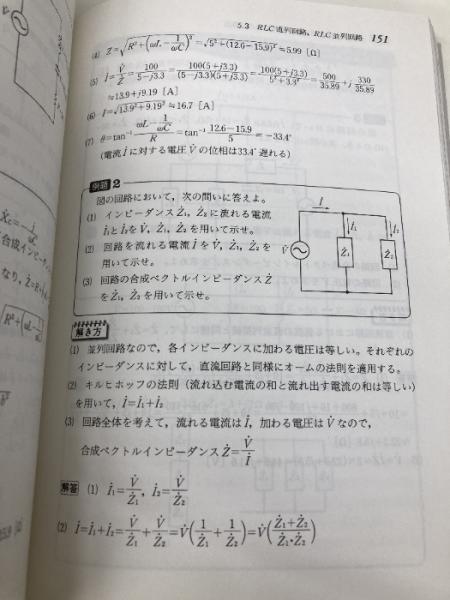 5.3 RLC直列回路、RLC並列回路 151
(4) Z=√(R²+(ωL−1/ωC)²)=√(5²+(12.6−15.9)²)≒5.99 [Ω]
(5) İ=V̇/Ż=100/(5−j3.3)=100(5+j3.3)/((5−j3.3)(5+j3.3))=100(5+j3.3)/(5²+3.3²)=500/35.89+j330/35.89
≒13.9+j9.19 [A]
(6) I=√(13.9²+9.19²)≒16.7 [A]
(7) θ=tan⁻¹(ωL−1/ωC)/R=tan⁻¹(12.6−15.9)/5=−33.4°
(電流İに対する電圧V̇の位相は33.4°遅れる)
例題2
図の回路において，次の問いに答えよ。
(1) インピーダンスŻ₁, Ż₂に流れる電流
İ₁とİ₂をV̇, Ż₁, Ż₂を用いて示せ。
(2) 回路を流れる電流İをV̇, Ż₁, Ż₂を
用いて示せ。
(3) 回路の合成ベクトルインピーダンスŻ
をŻ₁, Ż₂を用いて示せ。
İ
İ₁
İ₂
V̇
Ż₁
Ż₂
解き方
(1) 並列回路なので，各インピーダンスに加わる電圧は等しい。それぞれの
インピーダンスに対して，直流回路と同様にオームの法則を適用する。
(2) キルヒホッフの法則（流れ込む電流の和と流れ出す電流の和は等しい）
を用いて，İ=İ₁+İ₂
(3) 回路全体を考えて，流れる電流はİ，加わる電圧はV̇なので，
合成ベクトルインピーダンスŻ=V̇/İ
解答 (1) İ₁=V̇/Ż₁, İ₂=V̇/Ż₂
(2) İ=İ₁+İ₂=V̇/Ż₁+V̇/Ż₂=V̇(1/Ż₁+1/Ż₂)=V̇((Ż₁+Ż₂)/(Ż₁·Ż₂))